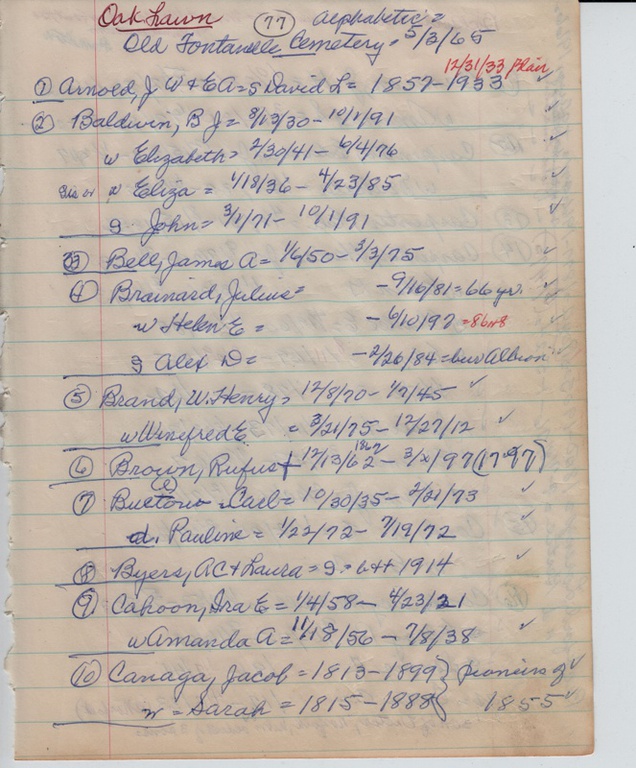 Oak Lawn (77) alphabetic =
Old Fontanelle Cemetery = 5/3/65
12/31/33 plain
① Arnold, J W + E A = s David L = 1857-1933 ✓
② Baldwin, B J = 8/13/30 - 10/1/91 ✓
w Elizabeth = 2/30/41 - 6/4/76 ✓
w Eliza = 1/18/36 - 4/23/85 ✓
s John = 3/1/71 - 10/1/91 ✓
③ Bell, James A = 1/6/50 - 3/3/75 ✓
④ Brainard, Julius = - 9/16/81 = 66 yr. ✓
w Helen E = - 6/10/97 = 86 ✓
s Alex D = - 2/26/84 = bur Albion
⑤ Brand, W. Henry = 12/8/70 - 1/7/45 ✓
w Winifred E = 3/21/75 - 12/27/12 ✓
⑥ Brown, Rufus + 12/13/62 1862 - 3/x/97 (1797)
⑦ Carl = 10/30/35 - 2/21/73 ✓
d. Pauline = 1/22/72 - 7/19/72 ✓
⑧ Byers, AC + Laura = 1914 ✓
⑨ Cahoon, Ira E = 1/4/58 - 4/23/21
w Amanda A = 11/18/56 - 7/8/38 ✓
⑩ Canaga, Jacob = 1813-1899 } pioneers of ✓
w = Sarah = 1815-1888 } 1855 ✓